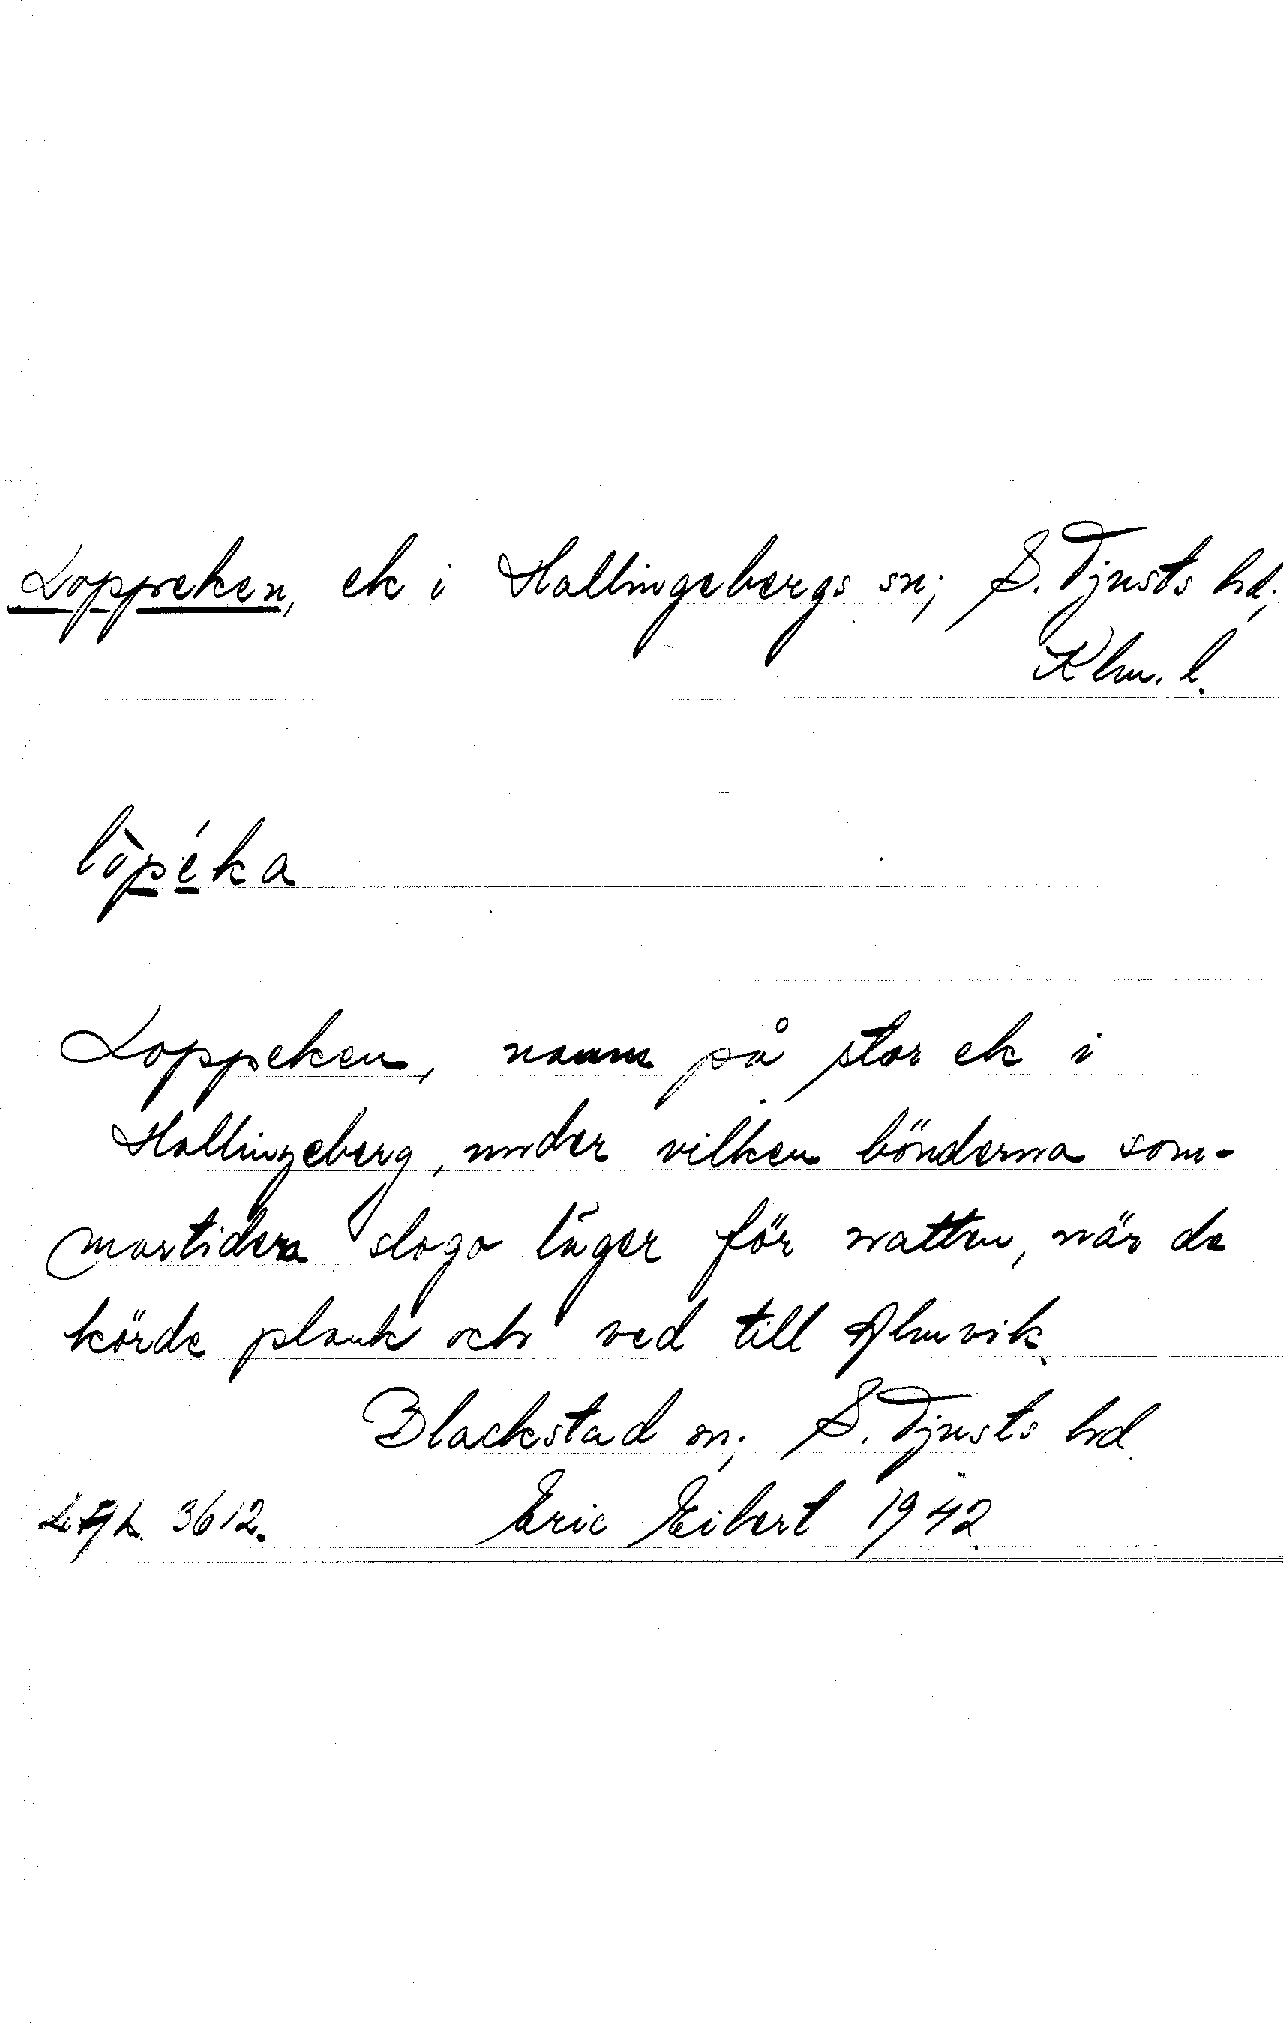 Loppeken, ek i Hallingebergs sn; S. Tjusts hd;
Klm. l.
lòpéka
Loppeken, namn på stor ek i
Hallingeberg, under vilken bönderna som-
martidera slogo läger för natten, när de
körde plank och ved till Almvik.
Blackstad sn; S. Tjusts hd.
3612. Eric Eibert 1942.